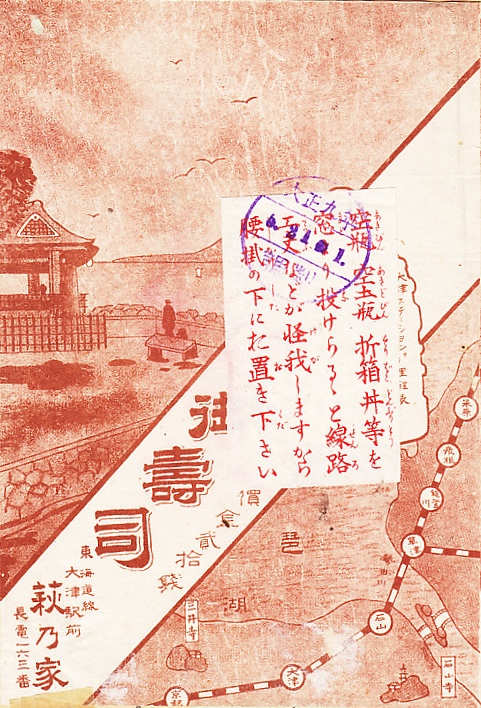 空瓶 空土瓶 折箱丼等を
窓より投げらるゝと線路
工夫などが怪我しますから
腰掛の下にお置き下さい
大正九
大津ステーション
里程表
御壽司
價金貳拾錢
東海道線
大津駅前
萩乃家
長電一六三番
琵
湖
米原
彦根
能登川
草津
石山
大津
京都
三井寺
石山寺